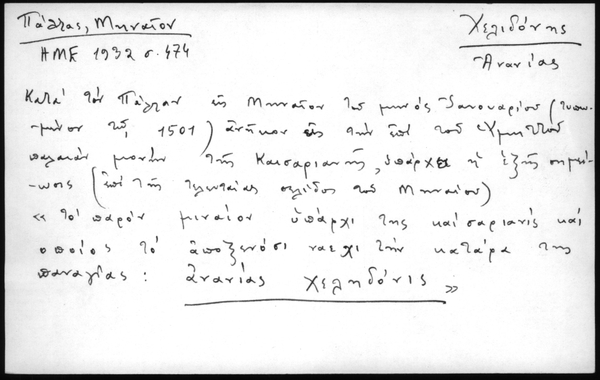 Πάλλας, Μηναῖον
Χελιδόνης
ΗΜΕ 1932 σ. 474
Ἀνανίας
Κατά τόν Πάλλαν εἰς Μηναῖον τοῦ μηνός Ἰανουαρίου (τυπω-
μένον τῷ 1501) ἀνῆκον εἰς τήν ἐπί τοῦ Ὑμηττοῦ
παλαιάν μονήν τῆς Καισαριανῆς, ὑπάρχει ἡ ἑξῆς σημεί-
ωσις (ἐπί τῆς τελευταίας σελίδος τοῦ Μηναίου)
« το παρόν μιναίον ὑπάρχι της καισαριανίς καί
οποίος τό ἀποξενόσι να εχι τήν κατάρα της
παναγίας : ἀνανίας χεληδόνις »